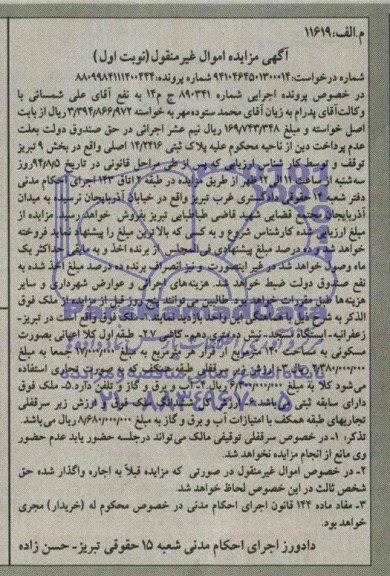 م.الف:۱۱۶۱۹
آگهی مزایده اموال غیرمنقول(نوبت اول)
شماره درخواست: شماره پرونده:
در خصوص پرونده اجرایی شماره ۸۹۰۳۴۱ ج م۱۴ به نفع آقای علی شمسائی با
وکالت‌آقای پدرام به زیان آقای محمد ستوده‌مهر به خواسته ۳/۳۹۴/۸۶۶/۹۷۲ ریال از بابت
اصل خواسته و مبلغ ۱۶۹/۷۴۳/۳۴۸ ریال نیم عشر اجرائی در حق صندوق دولت بعلت
عدم پرداخت دین از ناحیه محکوم علیه پلاک ثبتی ۱۴/۲۴۱۶ اصلی واقع در بخش ۹ تبریز
توقیف و توسط کارشناس ارزیابی که پس از طی مراحل قانونی در تاریخ
سه‌شنبه از ساعت ۱۱ الی ۱۲ ظهر از طریق مزایده در طبقه ۲ اتاق ۱۴۳ اجرای احکام مدنی
دفتر شعبه ۱۴ حقوقی دادگستری غرب تبریز واقع در خیابان آذربایجان نرسیده به میدان
آذربایجان مجتمع قضایی شهید قاضی طباطبایی تبریز بفروش خواهد رسید. مزایده از
مبلغ ارزیابی شده کارشناس شروع و به کسی که بالاترین مبلغ را پیشنهاد نماید فروخته
خواهد شد و ده درصد مبلغ پیشنهادی فی‌المجلس از برنده اخذ و به مابقی حداکثر یک
ماه وصول خواهد شد در غیر اینصورت و نیز انصراف برنده ده درصد مبلغ اخذ شده به
نفع صندوق دولت ضبط خواهد شد. هزینه‌های اجرائی و عوارض شهرداری و سایر
هزینه‌ها طبق مقررات خواهد بود. طالبین می‌توانند پنج روز قبل از مزایده از ملک فوق
الذکر به شرح ذیل با هماهنگی این واحد بازدید نمایند.
زعفرانیه- ایستگاه مسجد- نبش
مسکونی به مساحت ۱۴۰ مترمربع از قرار هر مترمربع به مبلغ جمعا به مبلغ
ریال ارزش زیر سرقفلی طبقه همکف که به صورت تجاری استفاده
می‌شود کلا به مبلغ ریال آب و برق و گاز و تلفن دارد.۵- ملک فوق
دارای سابقه ثبتی می‌باشد ملک فوق و ارزش زیر سرقفلی
تجاریهای طبقه همکف با امتیازات آب و برق و گاز به مبلغ ۸/۶۸۰/۰۰۰/۰۰۰ ریال می‌باشد.
تذکر: ۱- در خصوص سرقفلی توقیفی مالک می تواند درجلسه حضور یابد عدم حضور
وی مانع از انجام مزایده نخواهد شد.
۲- در خصوص اموال غیرمنقول در صورتی که مزایده قبلاً به اجاره واگذار شده حق
شخص ثالث در این خصوص لحاظ خواهد شد.
۳- مفاد ماده ۱۴۴ قانون اجرای احکام مدنی در خصوص محکوم له (خریدار) مجری
خواهد بود.
دادورز اجرای احکام مدنی شعبه ۱۵ حقوقی تبریز- حسن زاده